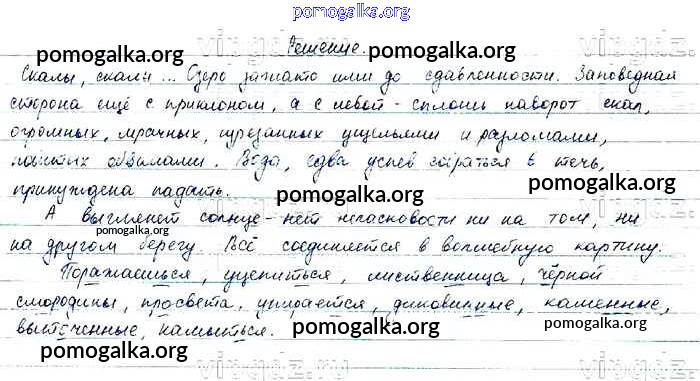 pomogalka.org
Решение.
pomogalka.org pomogalka.org
Скалы, скалы... Озеро зажато ими до сдавленности. Заповедная
сторона ещё с приклоном, а с левой - сплошь наворот скал,
огромных, мрачных, изрезанных ущельями и разломами,
обвалами. Вода, едва успев собраться в течь,
принуждена падать.
pomogalka.org pomogalka.org
А выглянет солнце - нет неласковости ни на том, ни
pomogalka.org
на другом берегу. Всё соединяется в волшебную картину.
Поражаешься, уцепиться, лиственница, чёрной
смородины, просвета, упирается, диковинные, каменные,
выточенные, намыться.
pomogalka.org pomogalka.org
pomogalka.org